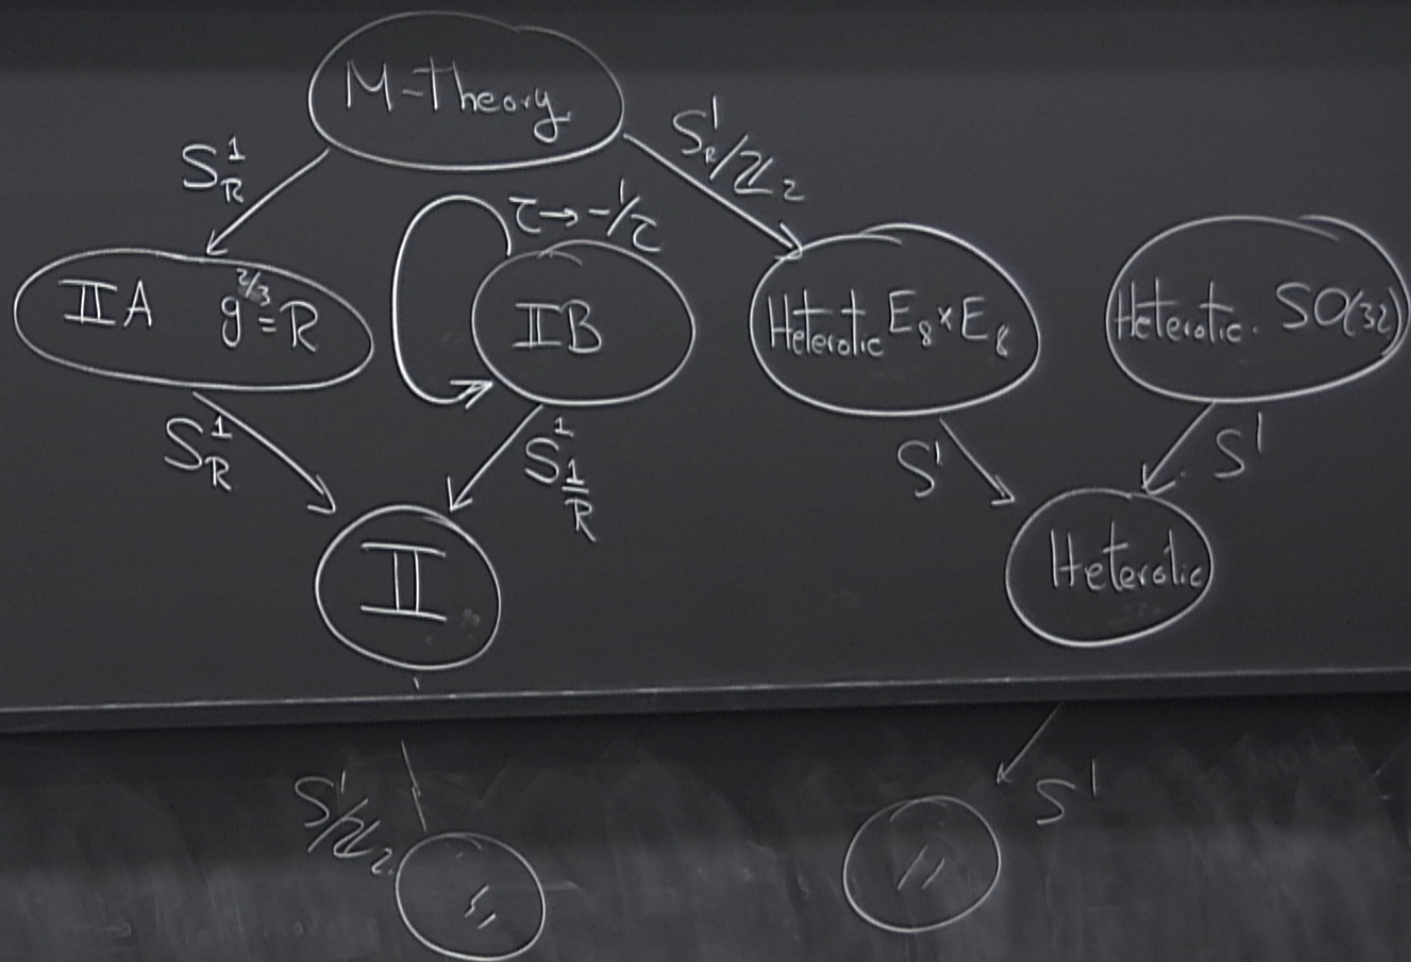 M-Theory
S^1_R
S^1_R/ℤ_2
τ→-1/τ
IIA g^{2/3}=R
IIB
Heterotic E_8×E_8
Heterotic. SO(32)
S^1_R
S^1_{1/R}
S^1
S^1
II
Heterotic
S^1/ℤ_2
S^1